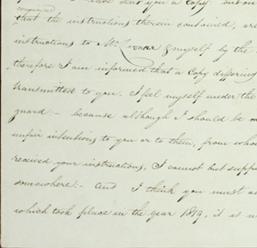 sent you a Copy
that the instructions therein contained, are
instructions to Mr. & myself by the
therefore I am informed that a Copy differing
transmitted to you. I feel myself under the
guard — because although I should be
unfair intentions to you or to them, from whom
received your instructions, I cannot but suppo
somewhere. — And I think you must
which took place in the year 1819, it is